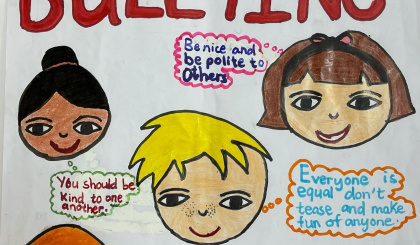 BULLYING
Be nice and
be polite to
Others
You should be
kind to one
another.
Everyone is
equal don't
tease and make
fun of anyone.